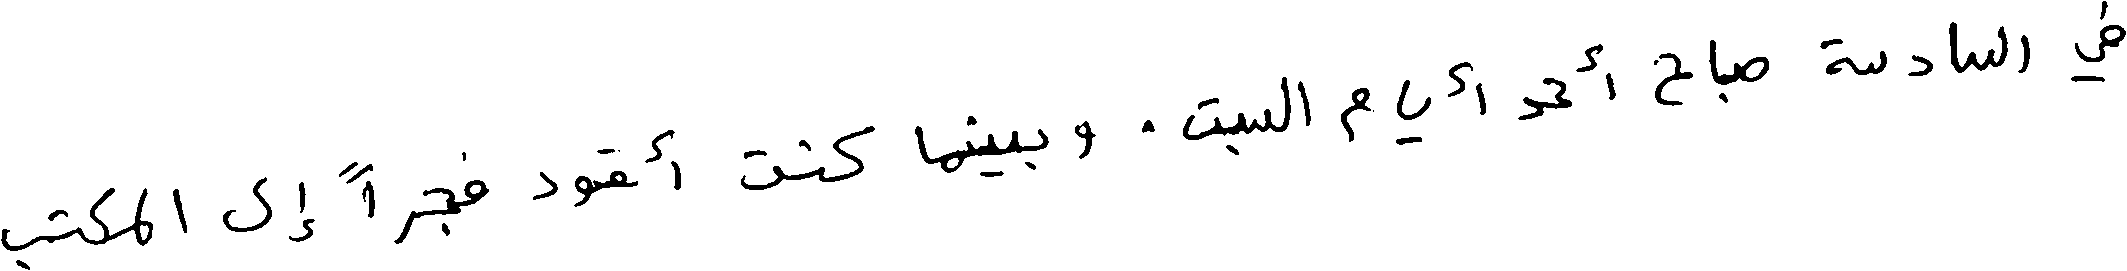 في السادسة صباح أحد أيام السبت. وبينما كنت أقود فجراً إلى المكتب